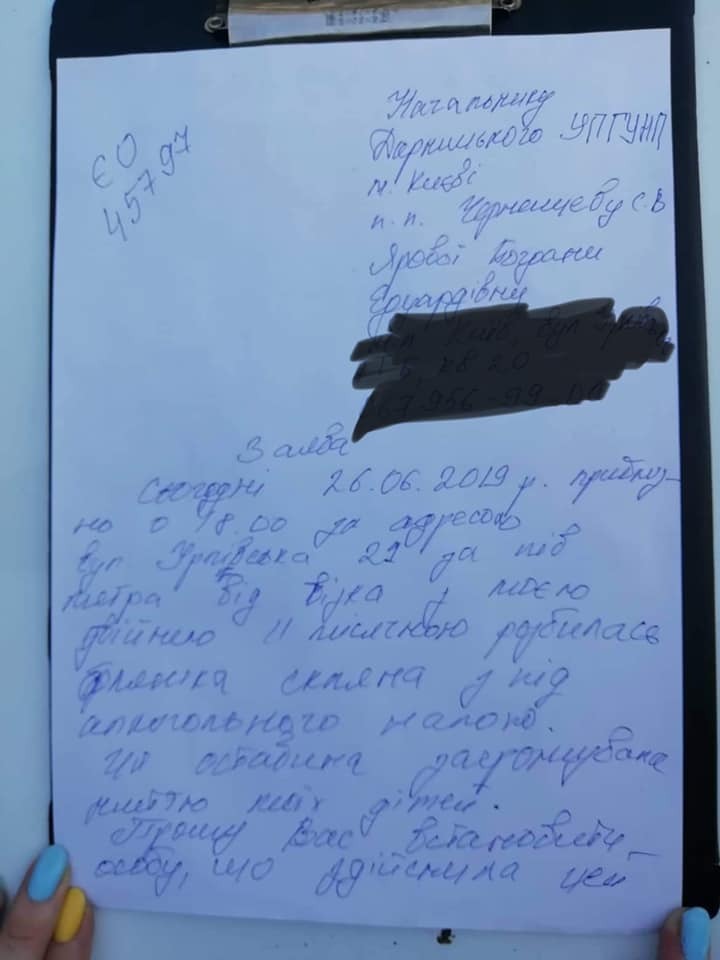 ЄО
45797
Начальнику
Дарницького УПГУНП
м. Києві
п.п. Черненцеву С.В
Ярової Богдани
Едуардівни
Заява
Сьогодні 26.06.2019 р. приблиз-
но о 18.00 за адресою
вул. Урлівська 21 за пів
метра від візка з моєю
двійнею 11 місячною розбилась
фляшка скляна з під
алкогольного напою.
Ця обставина загрожувала
життю моїх дітей.
Прошу Вас встановити
особу, що здійснила цей